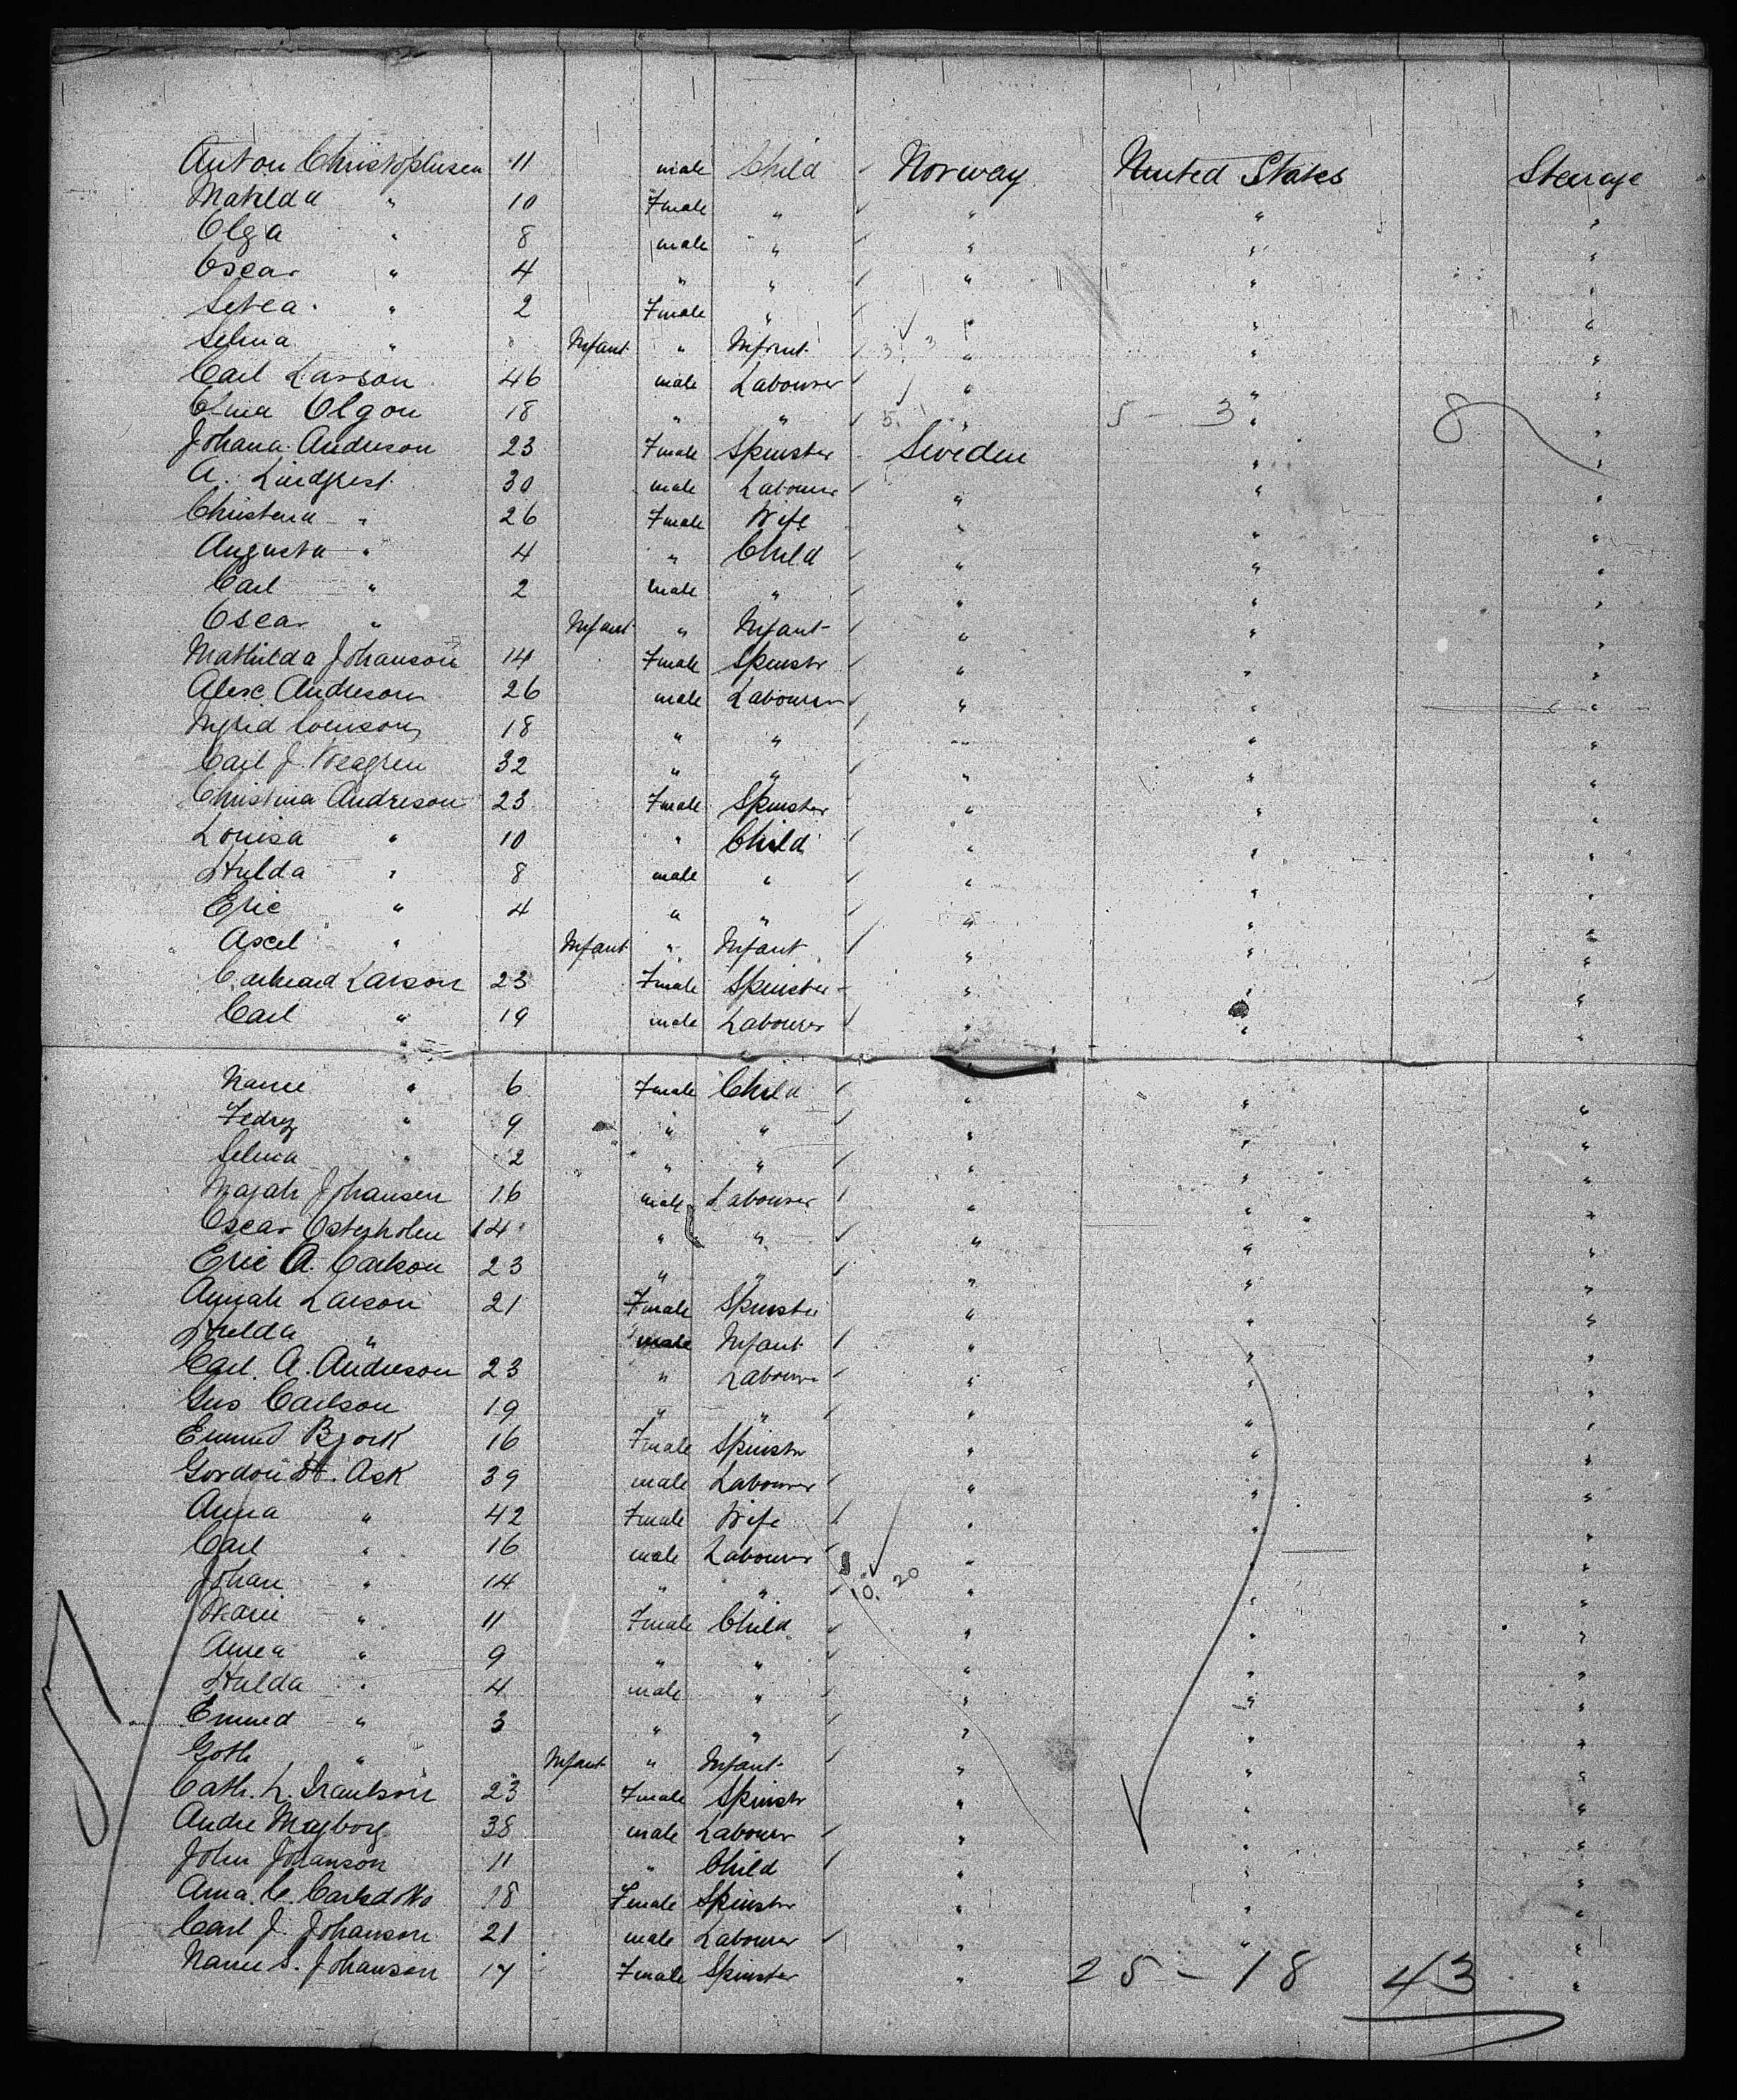 Anton Christophersen 11 male Child Norway United States Steerage
Matilda " 10 Female " " " "
Olga " 8 male " " " "
Oscar " 4 " " " " "
" 2 Female " " " "
Selma " Infant " Infant " " "
Carl Larson 46 male Labourer " " "
Olgon 18 " " " " "
Johana Anderson 23 Female Spinster Sweden " "
5 - 3 8
A. 30 male Labourer " " "
Christena " 26 Female Wife " " "
Augusta " 4 " Child " " "
Carl " 2 male " " " "
Oscar " Infant " Infant " " "
Mathilda Johanson 14 Female Spinstr " " "
Alex Anderson 26 male Labourer " " "
18 " " " " "
Carl J. 32 " " " " "
Christina Andreson 23 Female Spinster " " "
Louisa " 10 " Child " " "
Hulda " 8 male " " " "
Eric " 4 " " " " "
Axel " Infant " Infant " " "
Larson 23 Female Spinster " " "
Carl " 19 male Labourer " " "
" 6 Female Child " " "
" 9 " " " " "
Selma " 2 " " " " "
Majah Johansen 16 male Labourer " " "
Oscar Osterholm 14 " " " " "
Eric A. Carlson 23 " " " " "
Annah Larson 21 Female Spinster " " "
Hulda " male Infant " " "
Carl. A. Andreson 23 " Labourer " " "
Gus Carlson 19 " " " " "
Bjork 16 Female Spinstr " " "
Gordon Ask 39 male Labourer " " "
Anna " 42 Female Wife " " "
Carl " 16 male Labourer " " "
Johan " 14 " " 10. 20 " " "
Marie " 11 Female Child " " "
" 9 " " " " "
Hulda " 4 male " " " "
" 3 " " " " "
Goth " Infant " Infant " " "
Cath. L. 23 Female Spinstr " " "
Andre 38 male Labourer " " "
John Johanson 11 " Child " " "
Ana. C. 18 Female Spinstr " " "
Carl J. Johanson 21 male Labourer " " "
S. Johanson 17 Female Spinster " "
25 - 18 43